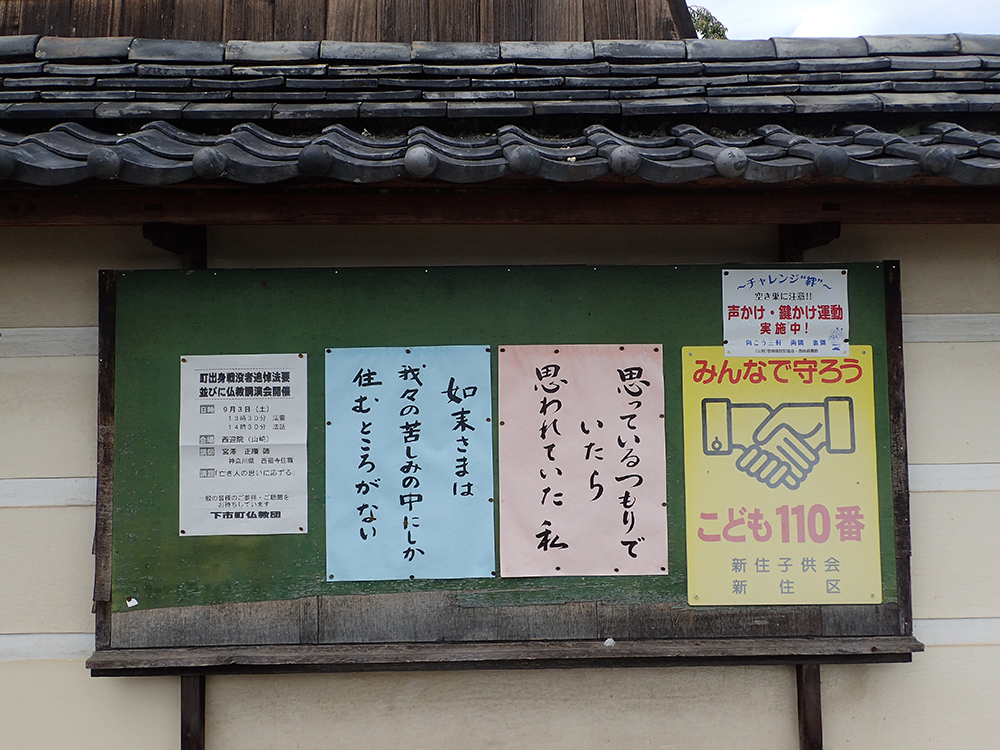 町出身戦没者追悼法要
並びに仏教講演会開催
日時 9月3日(土)
13時30分 法要
14時30分 法話
会場 西迎院(山崎)
講師 宮澤 正順 師
神奈川県 西福寺住職
講題「亡き人の思いに応ずる」
一般の皆様のご参拝・ご聴聞を
お待ちしています
下市町仏教団
如来さまは
我々の苦しみの中にしか
住むところがない
思っているつもりで
いたら
思われていた私
～チャレンジ“絆”～
空き巣に注意!!
声かけ・鍵かけ運動
実施中!
向こう三軒 両隣 裏隣
みんなで守ろう
こども110番
新住子供会
新住区